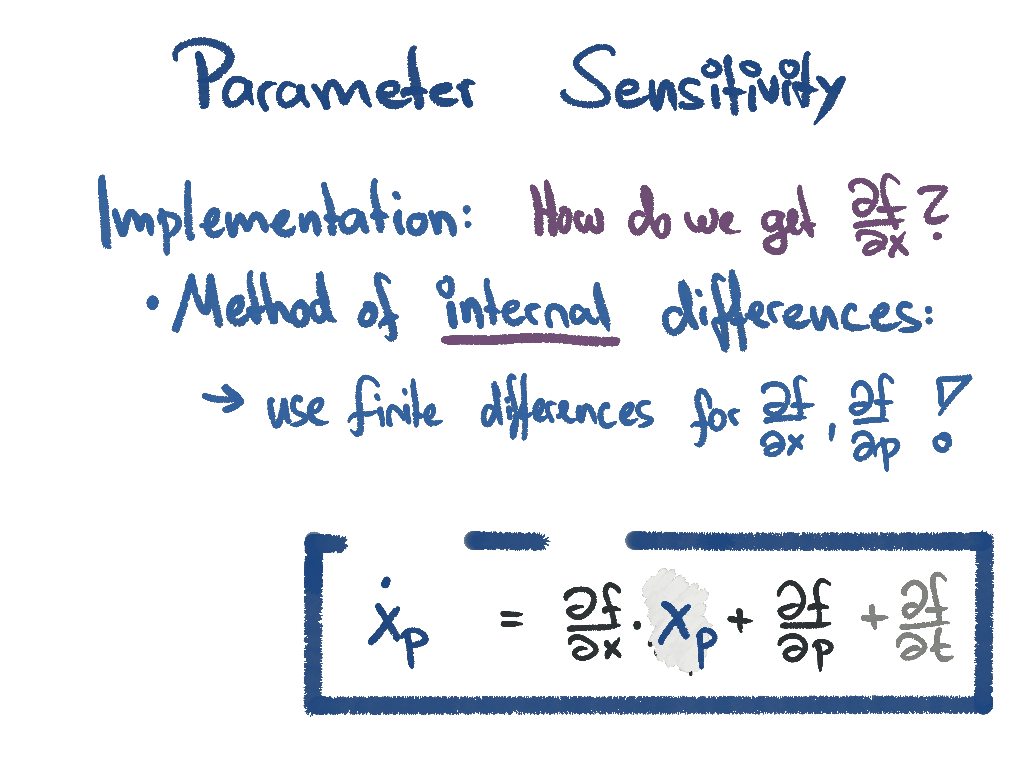 Parameter Sensitivity
Implementation: How do we get ∂f/∂x?
• Method of internal differences:
→ use finite differences for ∂f/∂x, ∂f/∂p !
ẋₚ = ∂f/∂x · xₚ + ∂f/∂p + ∂f/∂t